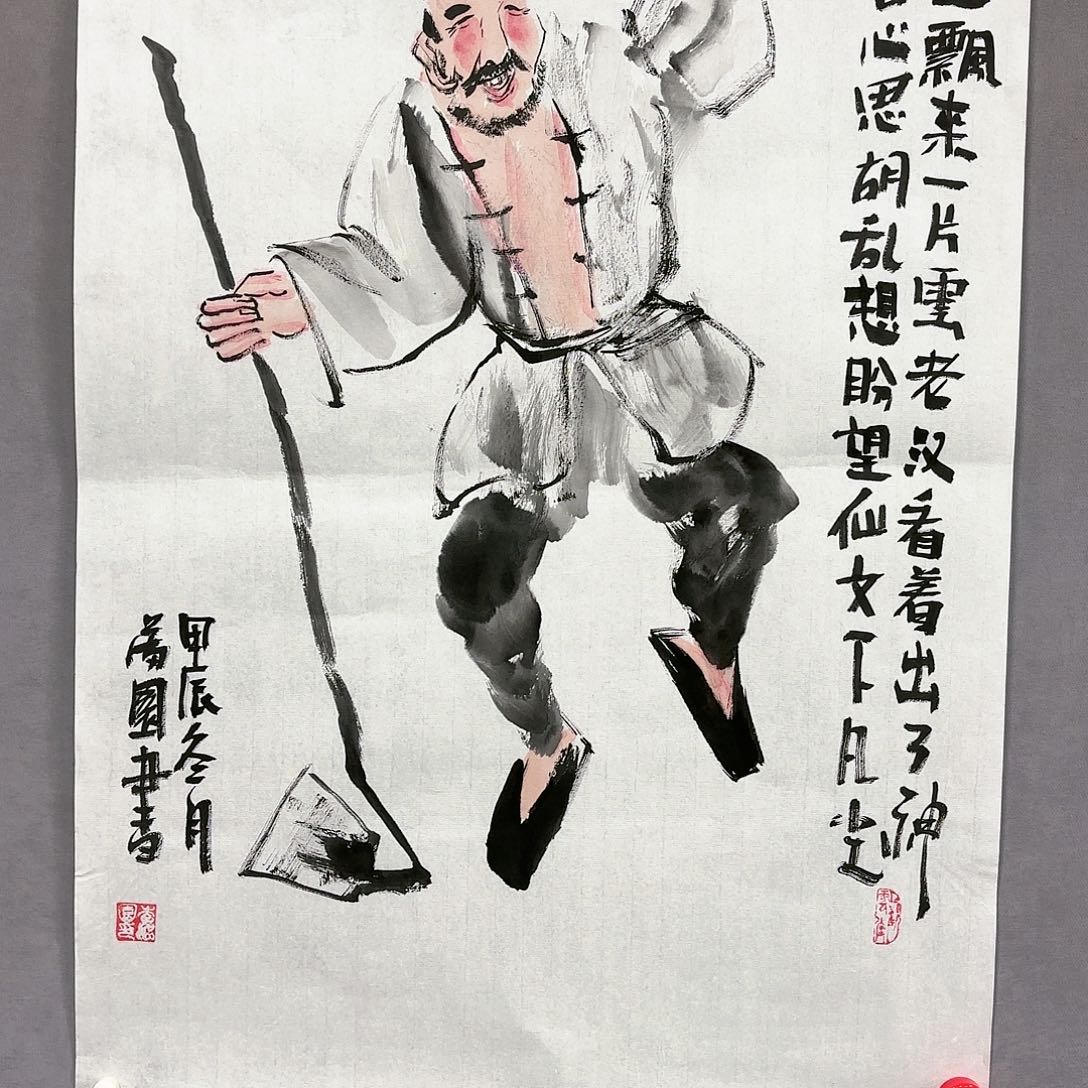 飄来一片雲老汉看着出了神
心思胡乱想盼望仙女下凡尘
甲辰冬月
园书